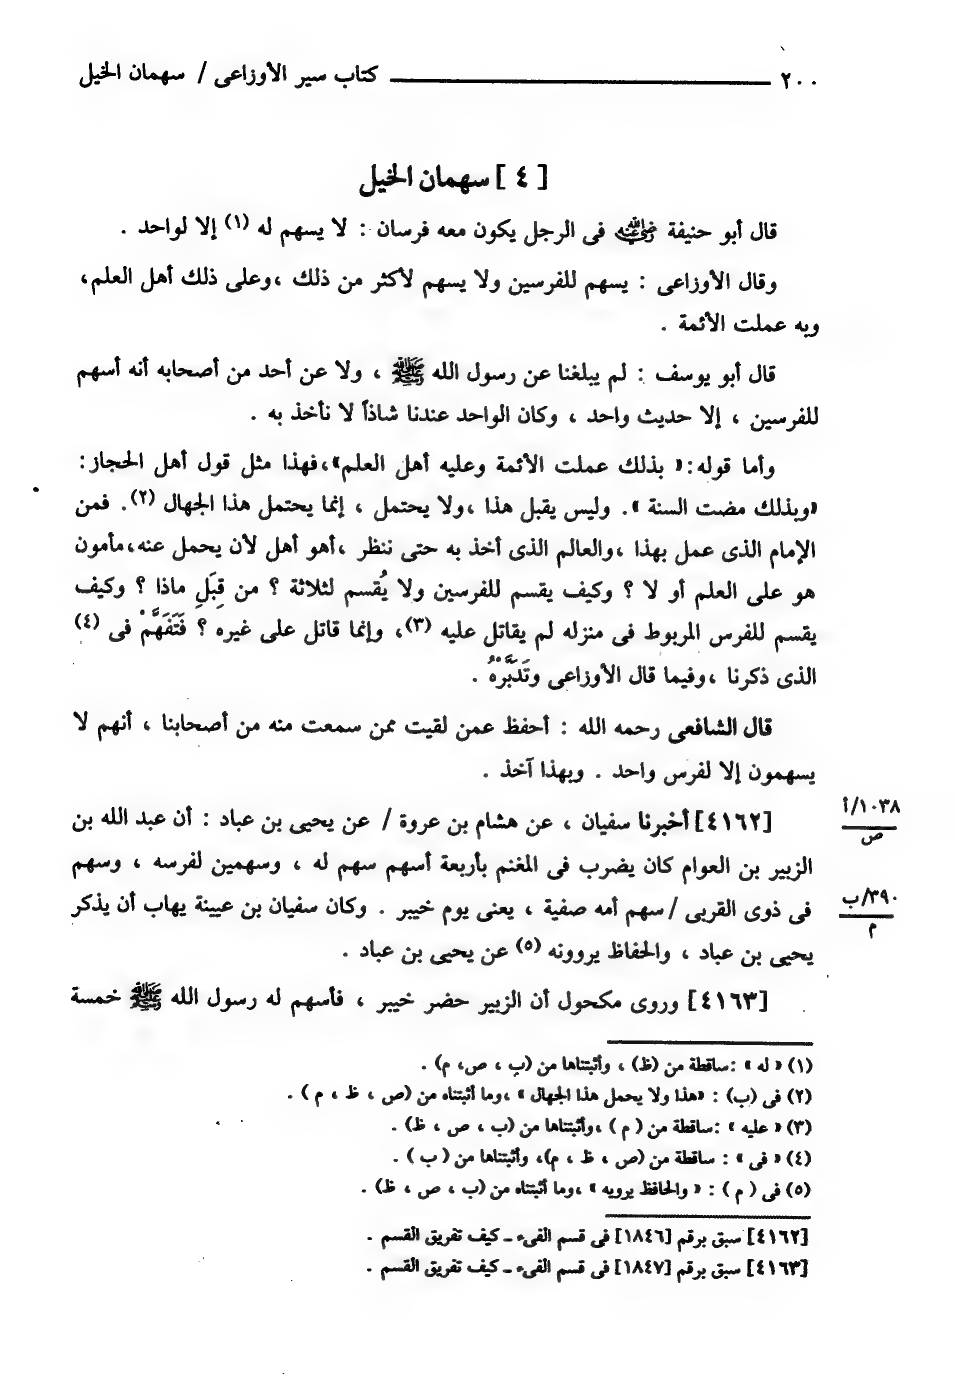 ٢٠٠ كتاب سير الأوزاعى / سهمان الخيل
[ ٤ ] سهمان الخيل
قال أبو حنيفة رضي الله عنه فى الرجل يكون معه فرسان : لا يسهم له (١) إلا لواحد .
وقال الأوزاعى : يسهم للفرسين ولا يسهم لأكثر من ذلك ،وعلى ذلك أهل العلم،
وبه عملت الأئمة .
قال أبو يوسف : لم يبلغنا عن رسول الله ﷺ ، ولا عن أحد من أصحابه أنه أسهم
للفرسين ، إلا حديث واحد ، وكان الواحد عندنا شاذاً لا نأخذ به .
وأما قوله:« بذلك عملت الأئمة وعليه أهل العلم»،فهذا مثل قول أهل الحجاز:
«وبذلك مضت السنة ». وليس يقبل هذا ،ولا يحتمل ، إنما يحتمل هذا الجهال (٢). فمن
الإمام الذى عمل بهذا ،والعالم الذى أخذ به حتى ننظر ،أهو أهل لأن يحمل عنه،مأمون
هو على العلم أو لا ؟ وكيف يقسم للفرسين ولا يُقسم لثلاثة ؟ من قِبَلِ ماذا ؟ وكيف
يقسم للفرس المربوط فى منزله لم يقاتل عليه (٣)، وإنما قاتل على غيره ؟ فَتَفَهَّمْ فى (٤)
الذى ذكرنا ،وفيما قال الأوزاعى وتَدَبَّرْهُ .
قال الشافعى رحمه الله : أحفظ عمن لقيت ممن سمعت منه من أصحابنا ، أنهم لا
يسهمون إلا لفرس واحد . وبهذا آخذ .
١٠٣٨/أ
ص
[٤١٦٢] أخبرنا سفيان ، عن هشام بن عروة / عن يحيى بن عباد : أن عبد الله بن
الزبير بن العوام كان يضرب فى المغنم بأربعة أسهم سهم له ، وسهمين لفرسه ، وسهم
٣٩٠/ب
م
فى ذوى القربى / سهم أمه صفية ، يعنى يوم خيبر . وكان سفيان بن عيينة يهاب أن يذكر
يحيى بن عباد ، والحفاظ يروونه (٥) عن يحيى بن عباد .
[٤١٦٣] وروى مكحول أن الزبير حضر خيبر ، فأسهم له رسول الله ﷺ خمسة
(١) « له » :ساقطة من (ظ) ، وأثبتناها من (ب ، ص، م) .
(٢) فى (ب) : «هذا ولا يحمل هذا الجهال » ،وما أثبتناه من (ص ، ظ ، م ) .
(٣) « عليه » :ساقطة من ( م ) ،وأثبتناها من (ب ، ص ، ظ) .
(٤) « فى » : ساقطة من (ص ، ظ ، م)، وأثبتناها من ( ب ) .
(٥) فى ( م ) : « والحافظ يرويه » ،وما أثبتناه من (ب ، ص ، ظ) .
[٤١٦٢] سبق برقم [١٨٤٦] فى قسم الفىء ـ كيف تفريق القسم .
[٤١٦٣] سبق برقم [١٨٤٧] فى قسم الفىء ـ كيف تفريق القسم .